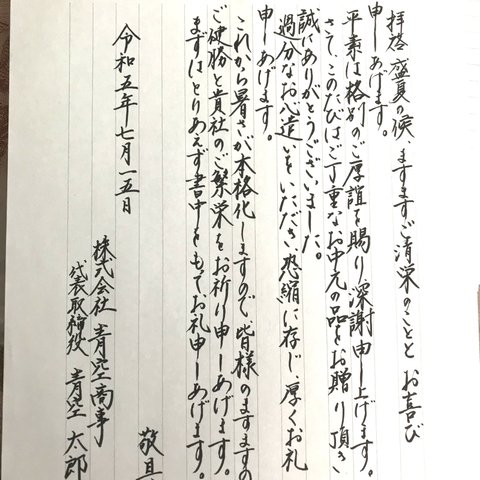 拝啓 盛夏の候、ますますご清栄のこととお喜び
申しあげます。
平素は格別のご厚誼を賜り深謝申し上げます。
さて、このたびはご丁重なお中元の品をお贈り頂き
誠にありがとうございました。
過分なお心遣いをいただき恐縮に存じ、厚くお礼
申しあげます。
これから暑さが本格化しますので、皆様のますますの
ご健勝と貴社のご繁栄をお祈り申しあげます。
まずはとりあえず書中をもてお礼申しあげます。
敬具
令和五年七月一五日
株式会社 青空商事
代表取締役 青空 太郎